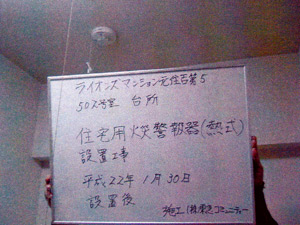 ライオンズマンション元住吉第5
502号室 台所
住宅用火災警報器(熱式)
設置工事
平成22年1月30日
設置後
施工 (株)東急コミュニティー